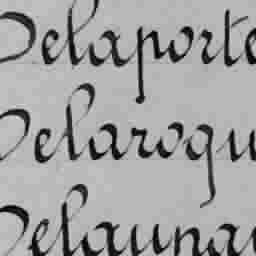 Delaporte
Delaroqu
Delaunay